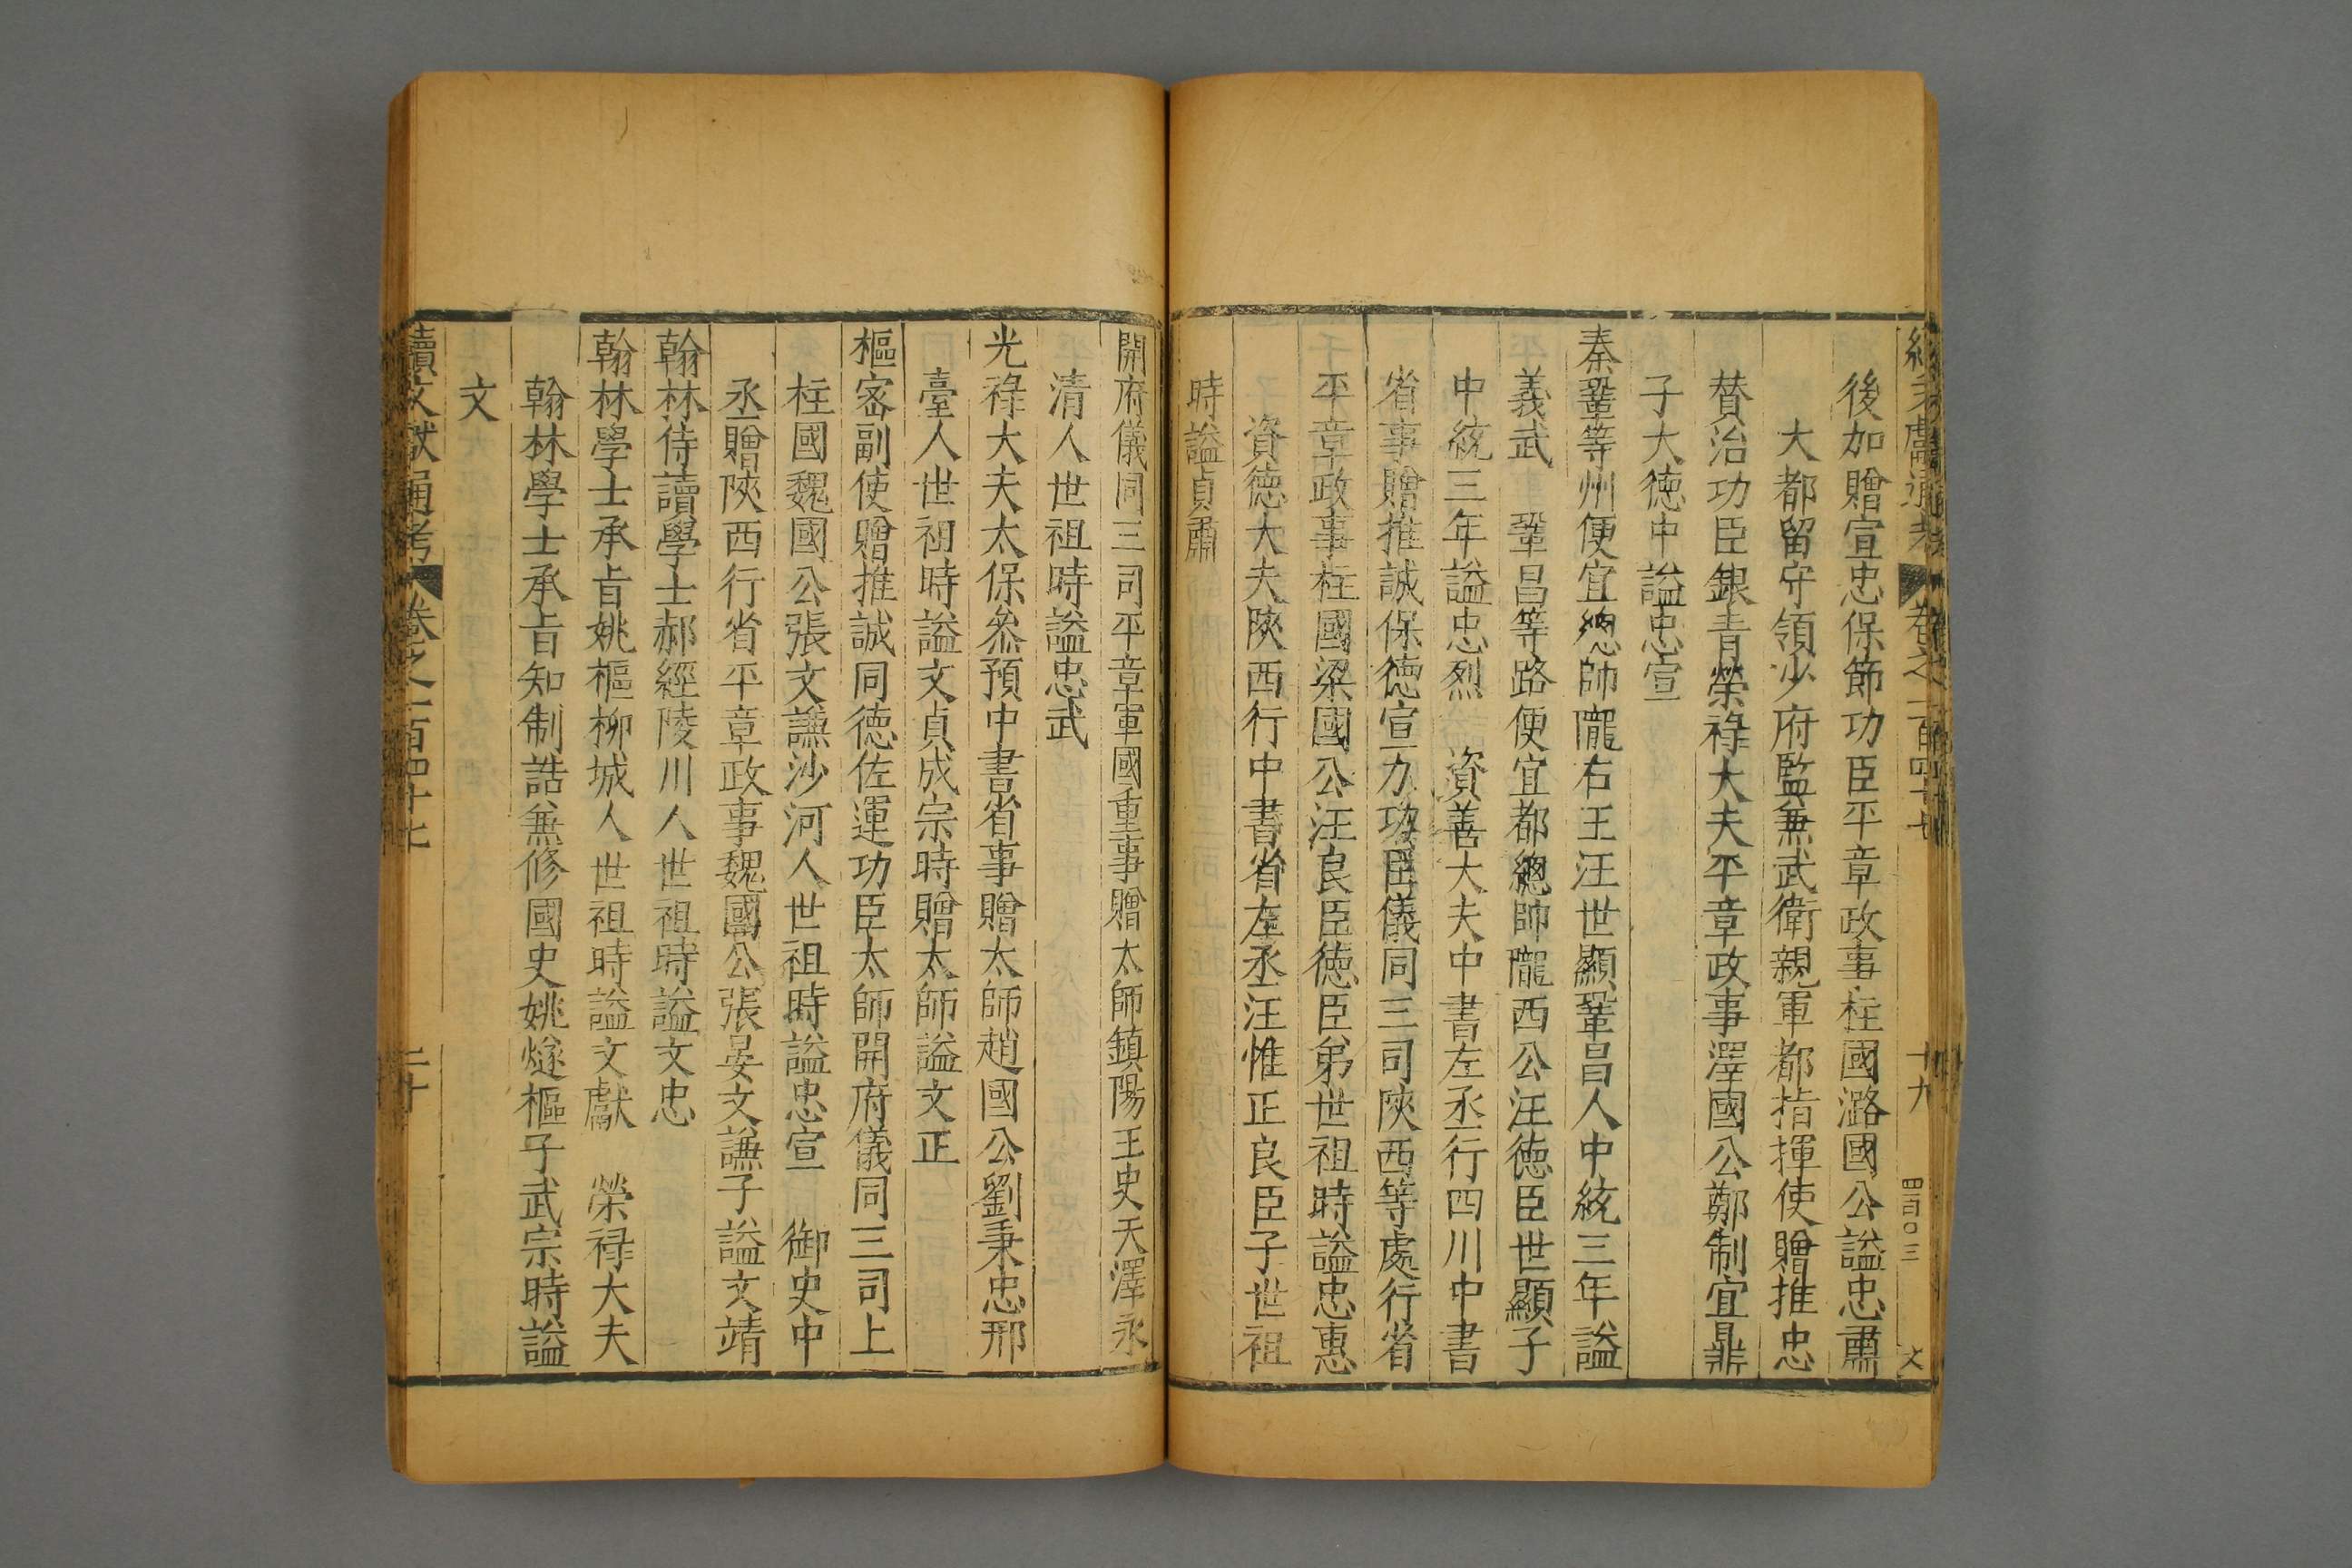 續文獻通考 卷之一百四十七 十九 四百〇三 文
後加贈宣忠保節功臣平章政事柱國潞國公謚忠肅
大都留守領少府監兼武衛親軍都指揮使贈推忠
賛治功臣銀青榮祿大夫平章政事澤國公鄭制宜鼎
子大德中謚忠宣
秦鞏等州便宜總帥隴右王汪世顯鞏昌人中統三年謚
義武 鞏昌等路便宜都總帥隴西公汪德臣世顯子
中統三年謚忠烈 資善大夫中書左丞行四川中書
省事贈推誠保德宣力功臣儀同三司陝西等處行省
平章政事柱國梁國公汪良臣德臣弟世祖時謚忠惠
資德大夫陝西行中書省左丞汪惟正良臣子世祖
時謚貞肅
開府儀同三司平章軍國重事贈太師鎮陽王史天澤永
清人世祖時謚忠武
光祿大夫太保叅預中書省事贈太師趙國公劉秉忠邢
臺人世祖時謚文貞成宗時贈太師謚文正
樞密副使贈推誠同德佐運功臣太師開府儀同三司上
柱國魏國公張文謙沙河人世祖時謚忠宣 御史中
丞贈陝西行省平章政事魏國公張晏文謙子謚文靖
翰林侍讀學士郝經陵川人世祖時謚文忠
翰林學士承旨姚樞柳城人世祖時謚文獻 榮祿大夫
翰林學士承旨知制誥兼修國史姚燧樞子武宗時謚
文
續文獻通考 卷之一百四十七 二十